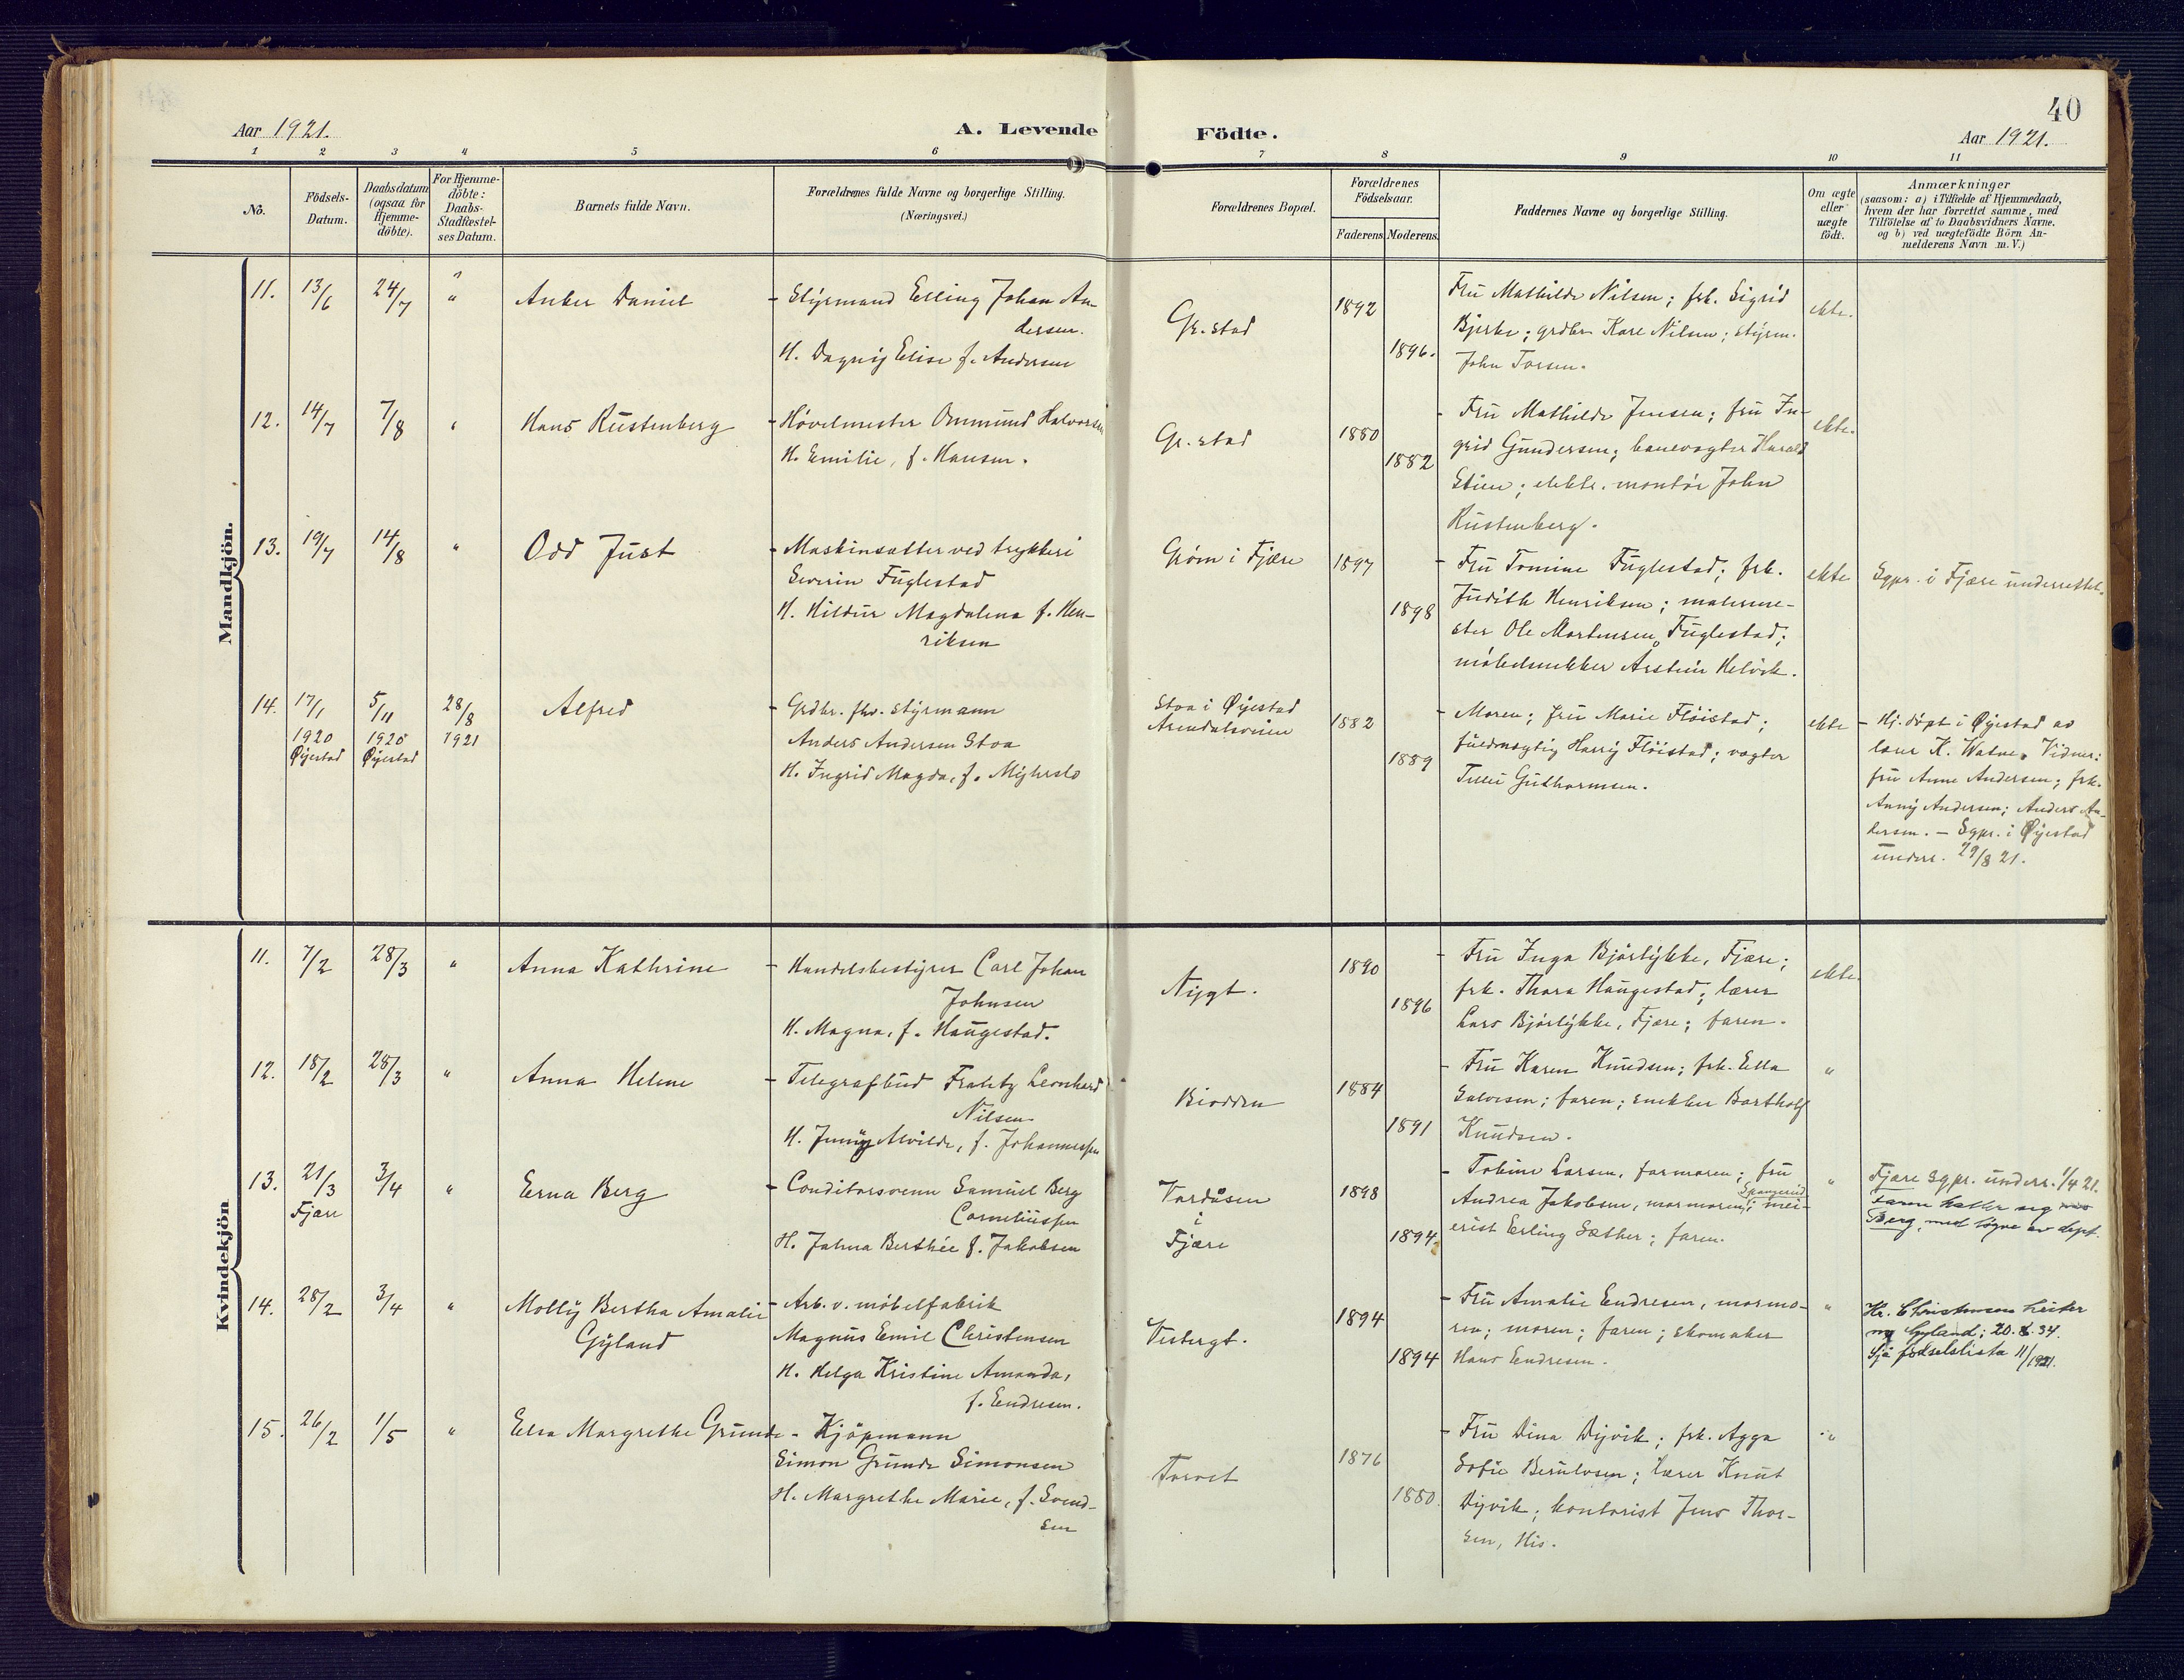 40
Aar 1921.
A. Levende Födte.
Aar 1921.
1 2 3 4 5 6 7 8 9 10 11
No.
Födsels-
Datum.
Daabsdatum
(ogsaa for
Hjemme-
döbte).
For Hjemme-
döbte:
Daabs-
Stadfæstel-
ses Datum.
Barnets fulde Navn.
Forældrenes fulde Navne og borgerlige Stilling.
(Næringsvei.)
Forældrenes Bopæl.
Forældrenes
Födselsaar.
Faderens. Moderens.
Faddernes Navne og borgerlige Stilling.
Om ægte
eller
uægte
födt.
Anmærkninger
(saasom: a) i Tilfælde af Hjemmedaab,
hvem der har forrettet samme, med
Tilföielse af to Daabsvidners Navne.
og b) ved uægtefödte Börn An-
melderens Navn m. V.)
Mandkjön.
11. 13/6 24/7 " Anker Daniel
- Styrmand Erling Johan An-
dersen.
H. Dagny Elise f. Andersen
Gr.stad
1892
1896.
Fru Mathilde Nilsen; frk. Sigrid
Bjerke; grdbr. Kare Nilsen; styrm.
John Torsen.
ekte.
12. 14/7 7/8 " Hans Rustenberg
- Høvelmester Ommund Halvorsen
H. Emilie, f. Hansen.
Gr.stad
1880
1882
- Fru Mathilde Jensen; fru In-
grid Gundersen; banevogter Harald
Stien; elektr. montør John
Rustenberg.
ekte.
13. 19/7 14/8 " Odd Just
- Maskinsetter ved trykkeri
Severin Fuglestad
H. Hildur Magdalena f. Hen-
riksen
Grøm i Fjære
1897
1898
- Fru Tomine Fuglestad; frk.
Judith Henriksen; malerme-
ster Ole Mortensen Fuglestad;
møbelsnekker Arstein Helvik.
ekte
Sgpr. i Fjære underrettet.
14. 17/1 5/11 28/8 Alfred
1920 1920 1921
Øyestad Øyestad
- Grdbr. fhv. styrmann
Anders Andersen Stoa
H. Ingrid Magda, f. Myhrslo
Stoa i Øyestad
Arendalsveien
1882
1889
- Moren; fru Marie Fløistad;
fuldmægtig Harry Fløistad; vogter
Tellu Guthormsen.
ekte
- Hj.døpt i Øyestad av
lærer K. Watne. Vidner:
fru Anne Andersen; frk.
Anny Andersen; Anders An-
dersen. - Sgpr. i Øyestad
underr. 29/8 21.
Kvindekjön
11. 7/2 28/3 " Anna Kathrine
- Handelsbestyrer Carl Johan
Johnsen
H. Magna, f. Haugestad.
Nygt.
1890
1896
- Fru Inga Bjørlykke, Fjære;
frk. Thora Haugestad; lærer
Lars Bjørlykke, Fjære; faren.
ekte.
12. 18/2 28/3 " Anna Helene
- Telegrafbud Frantz Leonhard
Nilsen
H. Jenny Alvilde, f. Johannessen
Biodden
1884
1891
- Fru Karen Knudsen; frk. Ella
Salvesen; faren; snekker Bartholf
Knudsen.
"
13. 21/3 3/4 " Erna Berg
Fjære
- Conditorsvenn Samuel Berg
Corneliussen
H. Johna Berthée f. Jakobsen
Vardåsen
i
Fjære
1898
1894
- Tobine Larsen, farmoren; fru
Andrea Jakobsen, mormoren; mei-
erist Erling Sæther; faren.
"
Fjære sgpr. underr. 1/4 21.
Faren kaller sig
Berg, med løyve av dept.
14. 28/2 3/4 " Molly Bertha Amalie
Gyland
- Arb. v. møbelfabrik
Magnus Emil Christensen
H. Helga Kristine Amanda,
f. Endresen.
Vesbergt.
1894
1894
- Fru Amalie Endresen, mormo-
ren; moren; faren; skomaker
Hans Endresen.
"
Hr. Christensen heiter
no Gyland; 20.8.34.
Sjå fødselslista 11/1921.
15. 26/2 1/5 " Elsa Margrethe Grunde
- Kjøpmann
Simon Grunde Simonsen
H. Margrethe Marie, f. Svend-
sen
Torvet
1876
1880.
- Fru Dina Dyvik; frk. Agga
Sofie Berulvsen; lærer Knut
Dyvik; kontorist Jens Thor-
sen, His.
"